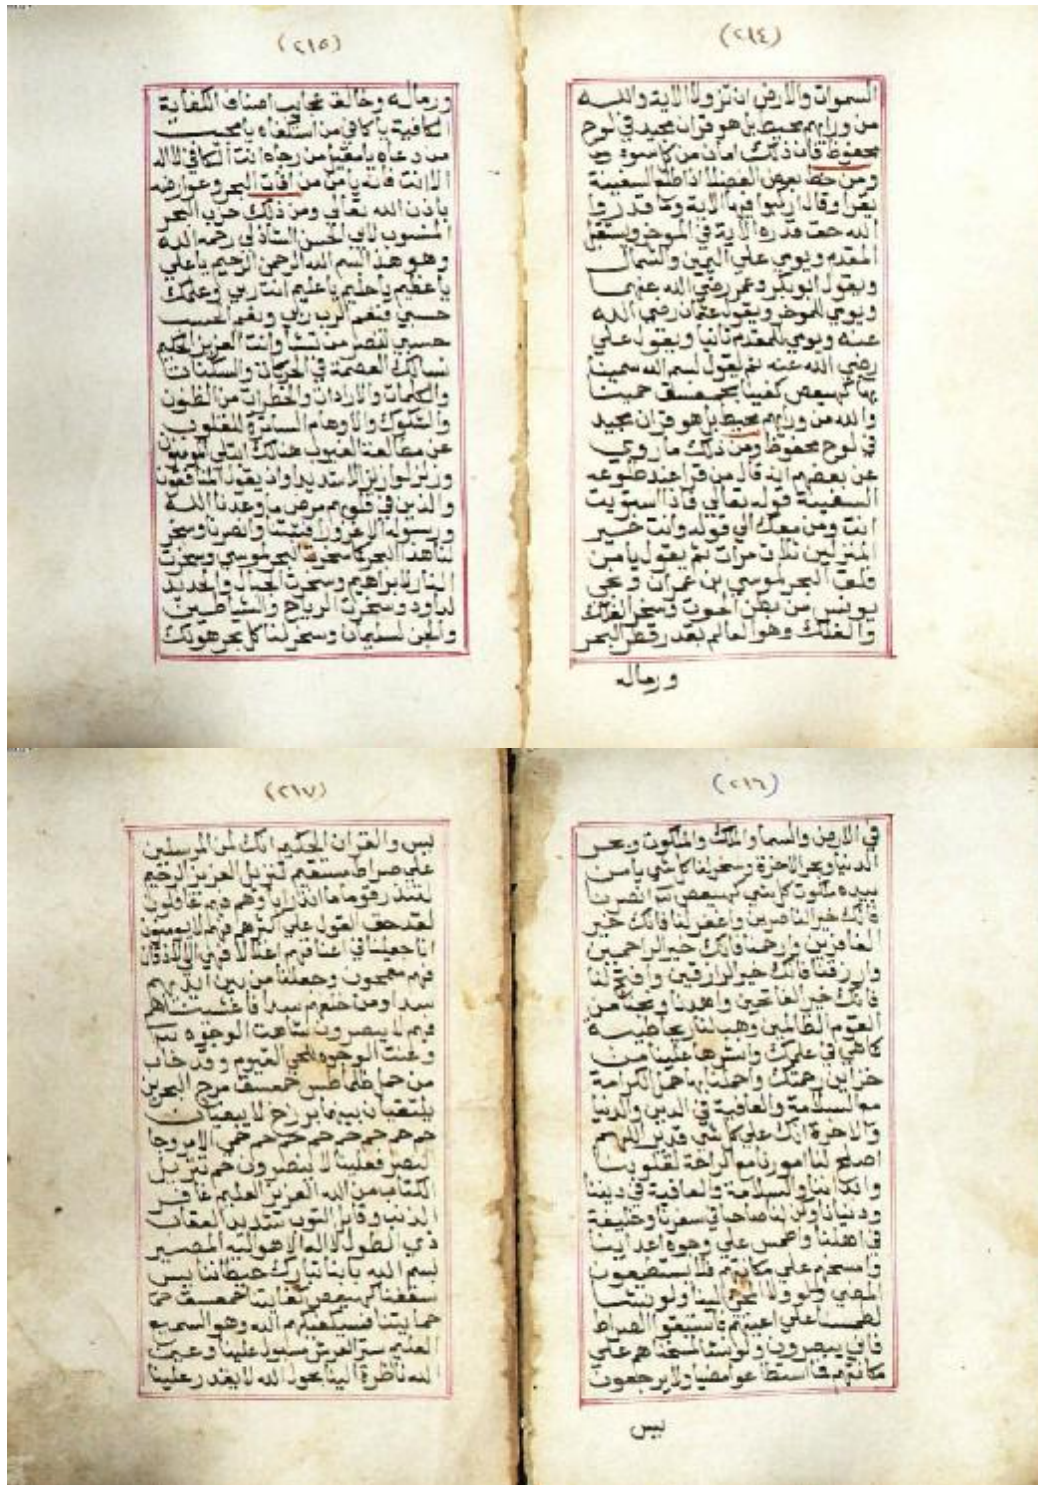 (٢١٤)
السموات والارض ان تزولا الاية والله
من ورايهم محيط بل هو قران مجيد في لوح
محفوظ فان ذلك امان من كل سوء
ومن خط بعض الفضلا اذا طلع السفينة
يقرا وقال اركبوا فيها الاية وما قدروا
الله حق قدره الاية في الموخر ويستقبل
المقدم ويومي علي اليمين والشمال
ويقول ابو بكر وعمر رضي الله عنهما
ويومي للموخر ويقول عثمان رضي الله
عنه ويومي للمقدم ثانيا ويقول علي
رضي الله عنه ثم يقول بسم الله سمينا
كهيعص كفينا بحمعسق حمينا
والله من ورايهم محيط بل هو قران مجيد
في لوح محفوظ ومن ذلك ما روي
عن بعضهم انه قال من قرا عند طلوعه
السفينة قوله تعالي فاذا استويت
انت ومن معك الي قوله وانت خير
المنزلين ثلاث مرات ثم يقول يا من
فلق البحر لموسي بن عمران ونجي
يونس من بطن الحوت وسخر الفلك
والفلك وهو العالم بعدد قطر البحر
ورماله
(٢١٥)
ورماله وخالق عجايب اصناف الكفاية
الكافية يا كافي من استكفاه يا مجيب
من دعاه يا مقيل من رجاه انت الكافي لا اله
الا انت فانه يامن من افات البحر وعوارضه
باذن الله تعالي ومن ذلك حزب البحر
المنسوب لابي الحسن الشاذلي رحمه الله
وهو هذا بسم الله الرحمن الرحيم يا علي
يا عظيم يا حليم يا عليم انت ربي وعلمك
حسبي فنعم الرب ربي ونعم الحسب
حسبي تنصر من تشا وانت العزيز الحكيم
نسالك العصمة في الحركات والسكنات
والكلمات والارادات والخطرات من الظنون
والشكوك والاوهام الساترة للقلوب
عن مطالعة الغيوب هنالك ابتلي المومنون
وزلزلوا زلزالا شديدا واذ يقول المنافقون
والذين في قلوبهم مرض ما وعدنا الله
ورسوله الا غرورا فثبتنا وانصرنا وسخر
لنا هذا البحر كما سخرت البحر لموسي وسخرت
النار لابراهيم وسخرت الجبال والحديد
لداود وسخرت الرياح والشياطين
والجن لسليمان وسخر لنا كل بحر هو لك
(٢١٦)
في الارض والسما والملك والملكوت وبحر
الدنيا وبحر الاخرة وسخر لنا كل شي يا من
بيده ملكوت كل شي كهيعص انصرنا
فانك خير الناصرين واغفر لنا فانك خير
الغافرين وارحمنا فانك خير الراحمين
وارزقنا فانك خير الرازقين وافتح لنا
فانك خير الفاتحين واهدنا ونجنا من
القوم الظالمين وهب لنا ريحا طيبة
كما هي في علمك وانشرها علينا من
خزاين رحمتك واحملنا بها حمل الكرامة
مع السلامة والعافية في الدين والدنيا
والاخرة انك علي كل شي قدير اللهم
اصلح لنا امورنا مع الراحة لقلوبنا
وابداننا والسلامة والعافية في ديننا
ودنيانا وكن لنا صاحبا في سفرنا وخليفة
في اهلنا واطمس علي وجوه اعداينا
وامسخهم علي مكانتهم فلا يستطيعون
المضي ولا المجي الينا ولو نشا
لطمسنا علي اعينهم فاستبقوا الصراط
فاني يبصرون ولو نشا لمسخناهم علي
مكانتهم فما استطاعوا مضيا ولا يرجعون
يس
(٢١٧)
يس والقران الحكيم انك لمن المرسلين
علي صراط مستقيم تنزيل العزيز الرحيم
لتنذر قوما ما انذر اباوهم فهم غافلون
لقد حق القول علي اكثرهم فهم لا يومنون
انا جعلنا في اعناقهم اغلالا فهي الي الاذقان
فهم مقمحون وجعلنا من بين ايديهم
سدا ومن خلفهم سدا فاغشيناهم
فهم لا يبصرون شاهت الوجوه
وعنت الوجوه للحي القيوم وقد خاب
من حمل ظلما طس حمعسق مرج البحرين
يلتقيان بينهما برزخ لا يبغيان
حم حم حم حم حم حم حم حم الامر وجا
النصر فعلينا لا ينصرون حم تنزيل
الكتاب من الله العزيز العليم غافر
الذنب وقابل التوب شديد العقاب
ذي الطول لا اله الا هو اليه المصير
بسم الله بابنا تبارك حيطاننا يس
سقفنا كهيعص كفايتنا حمعسق
حمايتنا فسيكفيكهم الله وهو السميع
العليم ستر العرش مسبول علينا وعين
الله ناظرة الينا بحول الله لا يقدر علينا